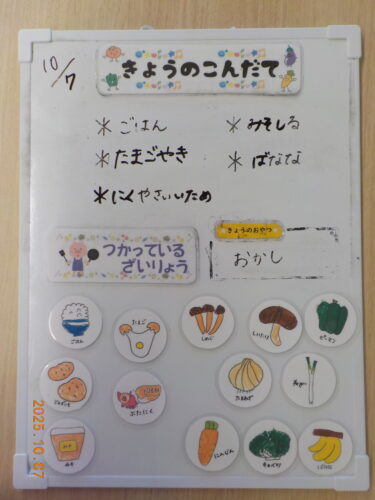 10/7
きょうのこんだて
＊ごはん
＊みそしる
＊たまごやき
＊ばなな
＊にくやさいいため
つかっている
ざいりょう
きょうのおやつ
おかし
ごはん
たまご
しめじ
しいたけ
ピーマン
じゃがいも
ぶたにく
たまねぎ
みそ
みそ
にんじん
キャベツ
ばなな
2025.10.07